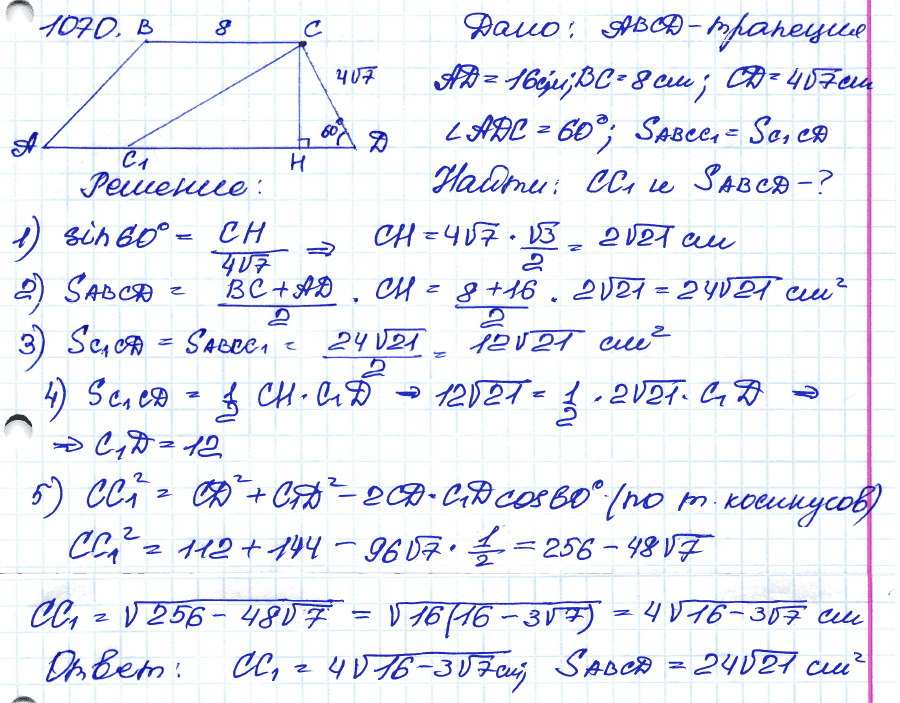 1070. B 8 C
4√7
60°
A C₁ H D
Дано: ABCD - трапеция
AD = 16см; BC = 8 см; CD = 4√7 см
∠ADC = 60°; SABCC₁ = SC₁CD
Найти: CC₁ и SABCD - ?
Решение:
1) sin 60° = CH/4√7 ⇒ CH = 4√7 · √3/2 = 2√21 см
2) SABCD = (BC + AD)/2 · CH = (8 + 16)/2 · 2√21 = 24√21 см²
3) SC₁CD = SABCC₁ = 24√21/2 = 12√21 см²
4) SC₁CD = 1/2 CH · C₁D → 12√21 = 1/2 · 2√21 · C₁D ⇒
⇒ C₁D = 12
5) CC₁² = CD² + C₁D² - 2CD · C₁D cos 60° (по т. косинусов)
CC₁² = 112 + 144 - 96√7 · 1/2 = 256 - 48√7
CC₁ = √(256 - 48√7) = √(16(16 - 3√7)) = 4√(16 - 3√7) см
Ответ: CC₁ = 4√(16 - 3√7) см; SABCD = 24√21 см²